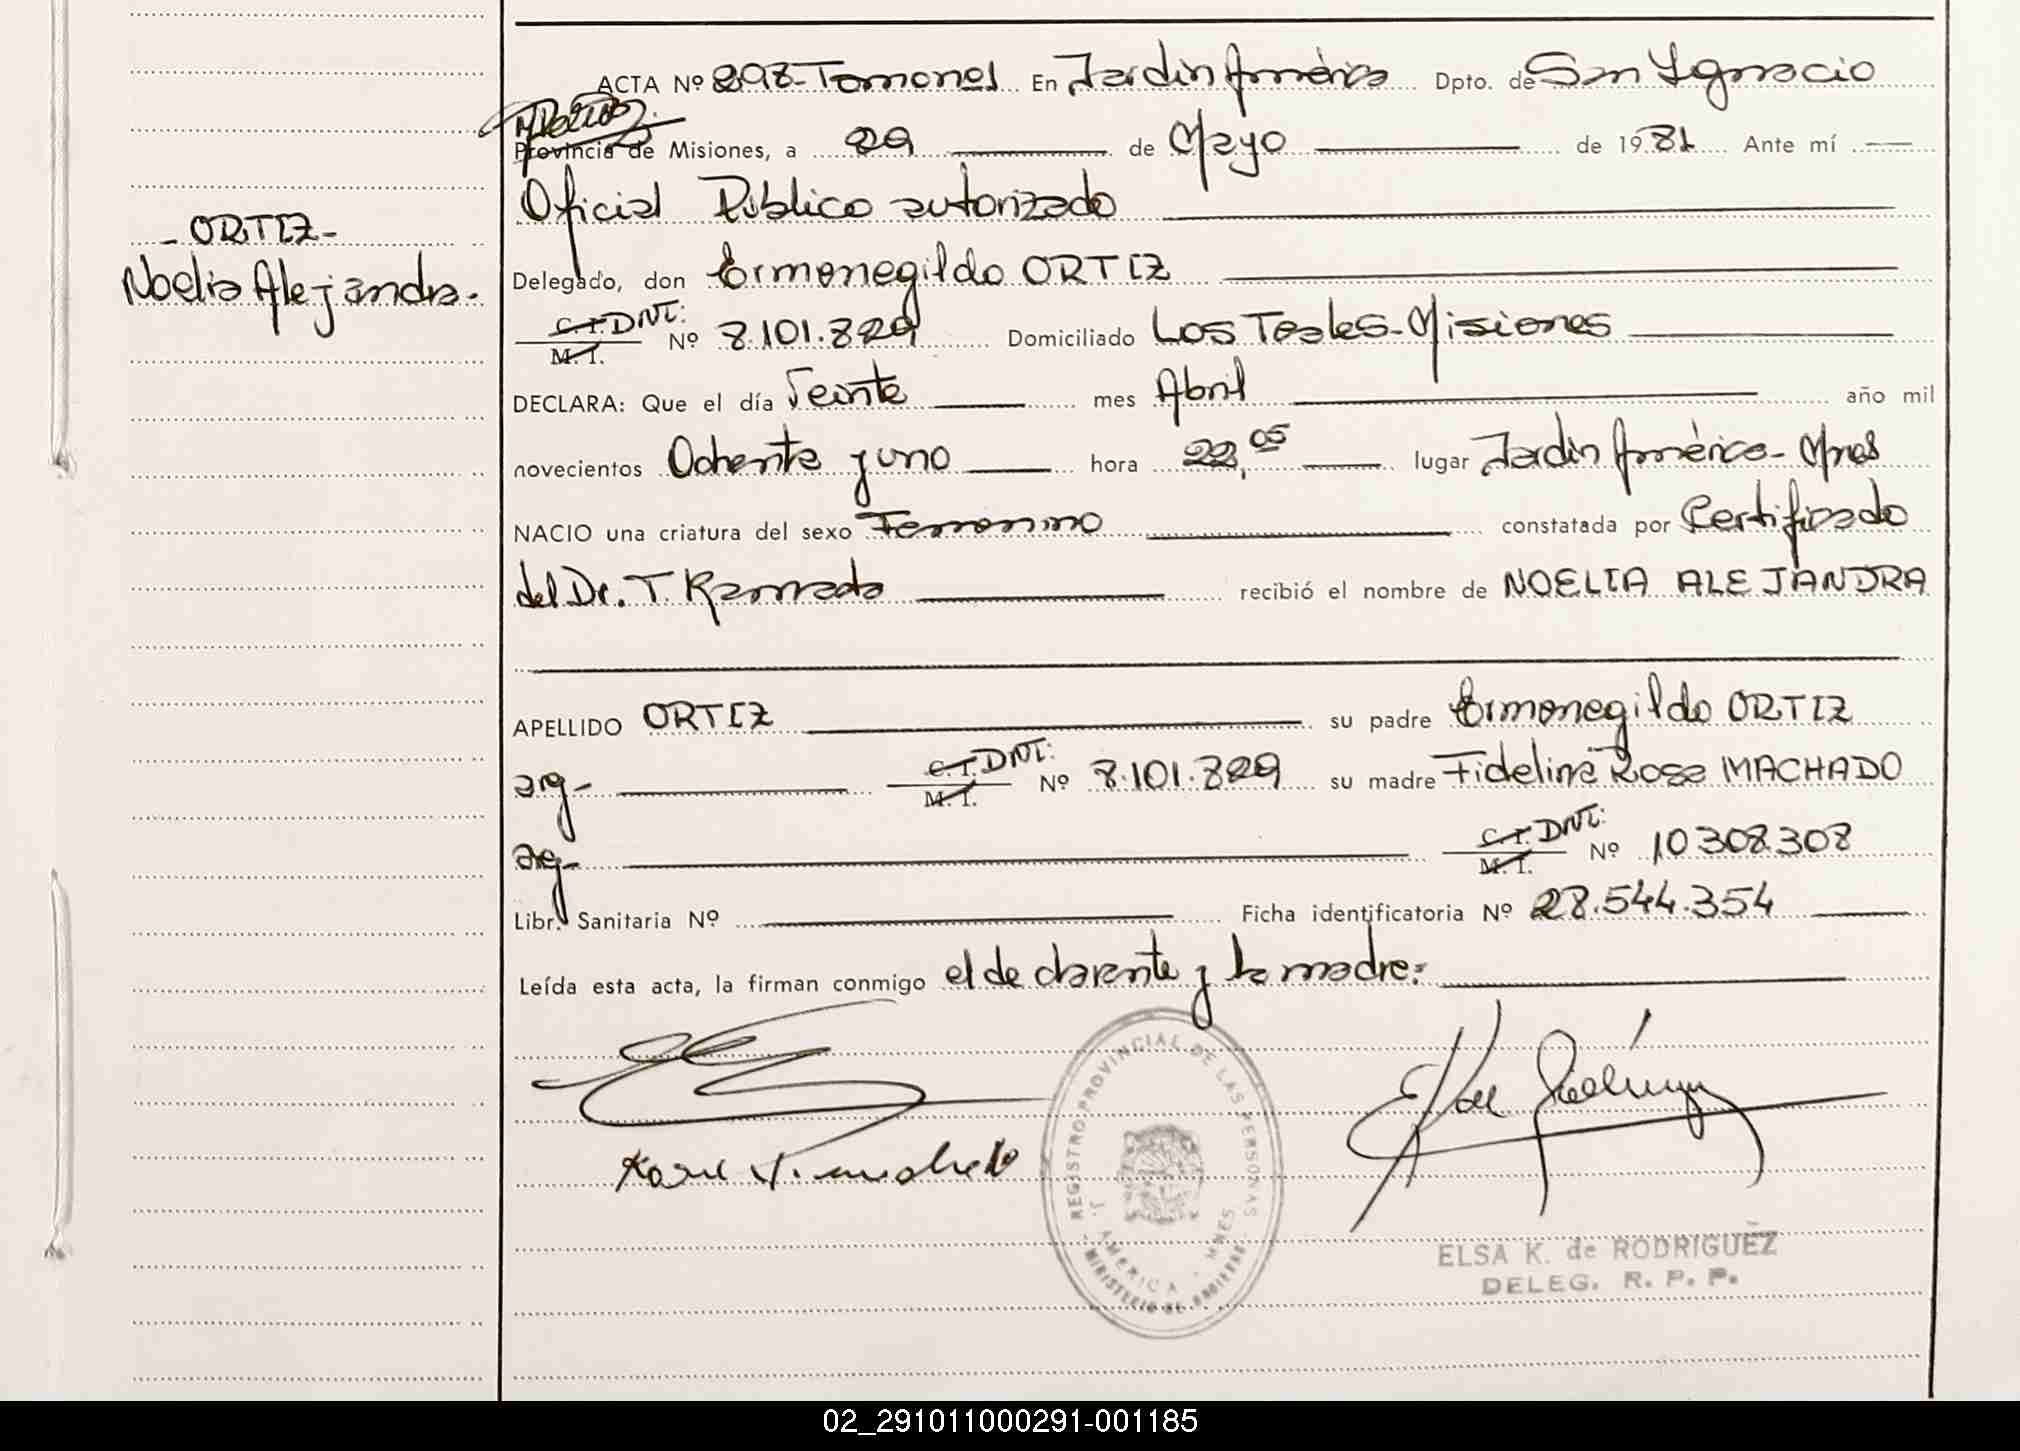 ACTA Nº 898-Tomo no 1 En Jardin América Dpto. de San Ignacio
Provincia de Misiones, a 29 de Mayo de 1981 Ante mí
Oficial Público autorizado
- ORTIZ -
Delegado, don Ermenegildo ORTIZ
Noelia Alejandra.
C.I. DNI: M.I. Nº 8.101.829 Domiciliado Los Teales-Misiones
DECLARA: Que el día Veinte mes Abril año mil
novecientos Ochenta y uno hora 22,05 lugar Jardin América-Mnes
NACIO una criatura del sexo Femenino constatada por Certificado
del Dr. T. recibió el nombre de NOELIA ALEJANDRA
APELLIDO ORTIZ su padre Ermenegildo ORTIZ
arg- C.I. DNI: M.I. Nº 8.101.829 su madre Fidelina Rosa MACHADO
arg- C.I. DNI: M.I. Nº 10308308
Libr. Sanitaria Nº Ficha identificatoria Nº 28.544.354
Leída esta acta, la firman conmigo el declarante y la madre:
REGISTRO PROVINCIAL DE LAS PERSONAS
J. AMERICA - MNES
- MINISTERIO DE GOBIERNO -
ELSA K. de RODRIGUEZ
DELEG. R. P. P.
02_291011000291-001185